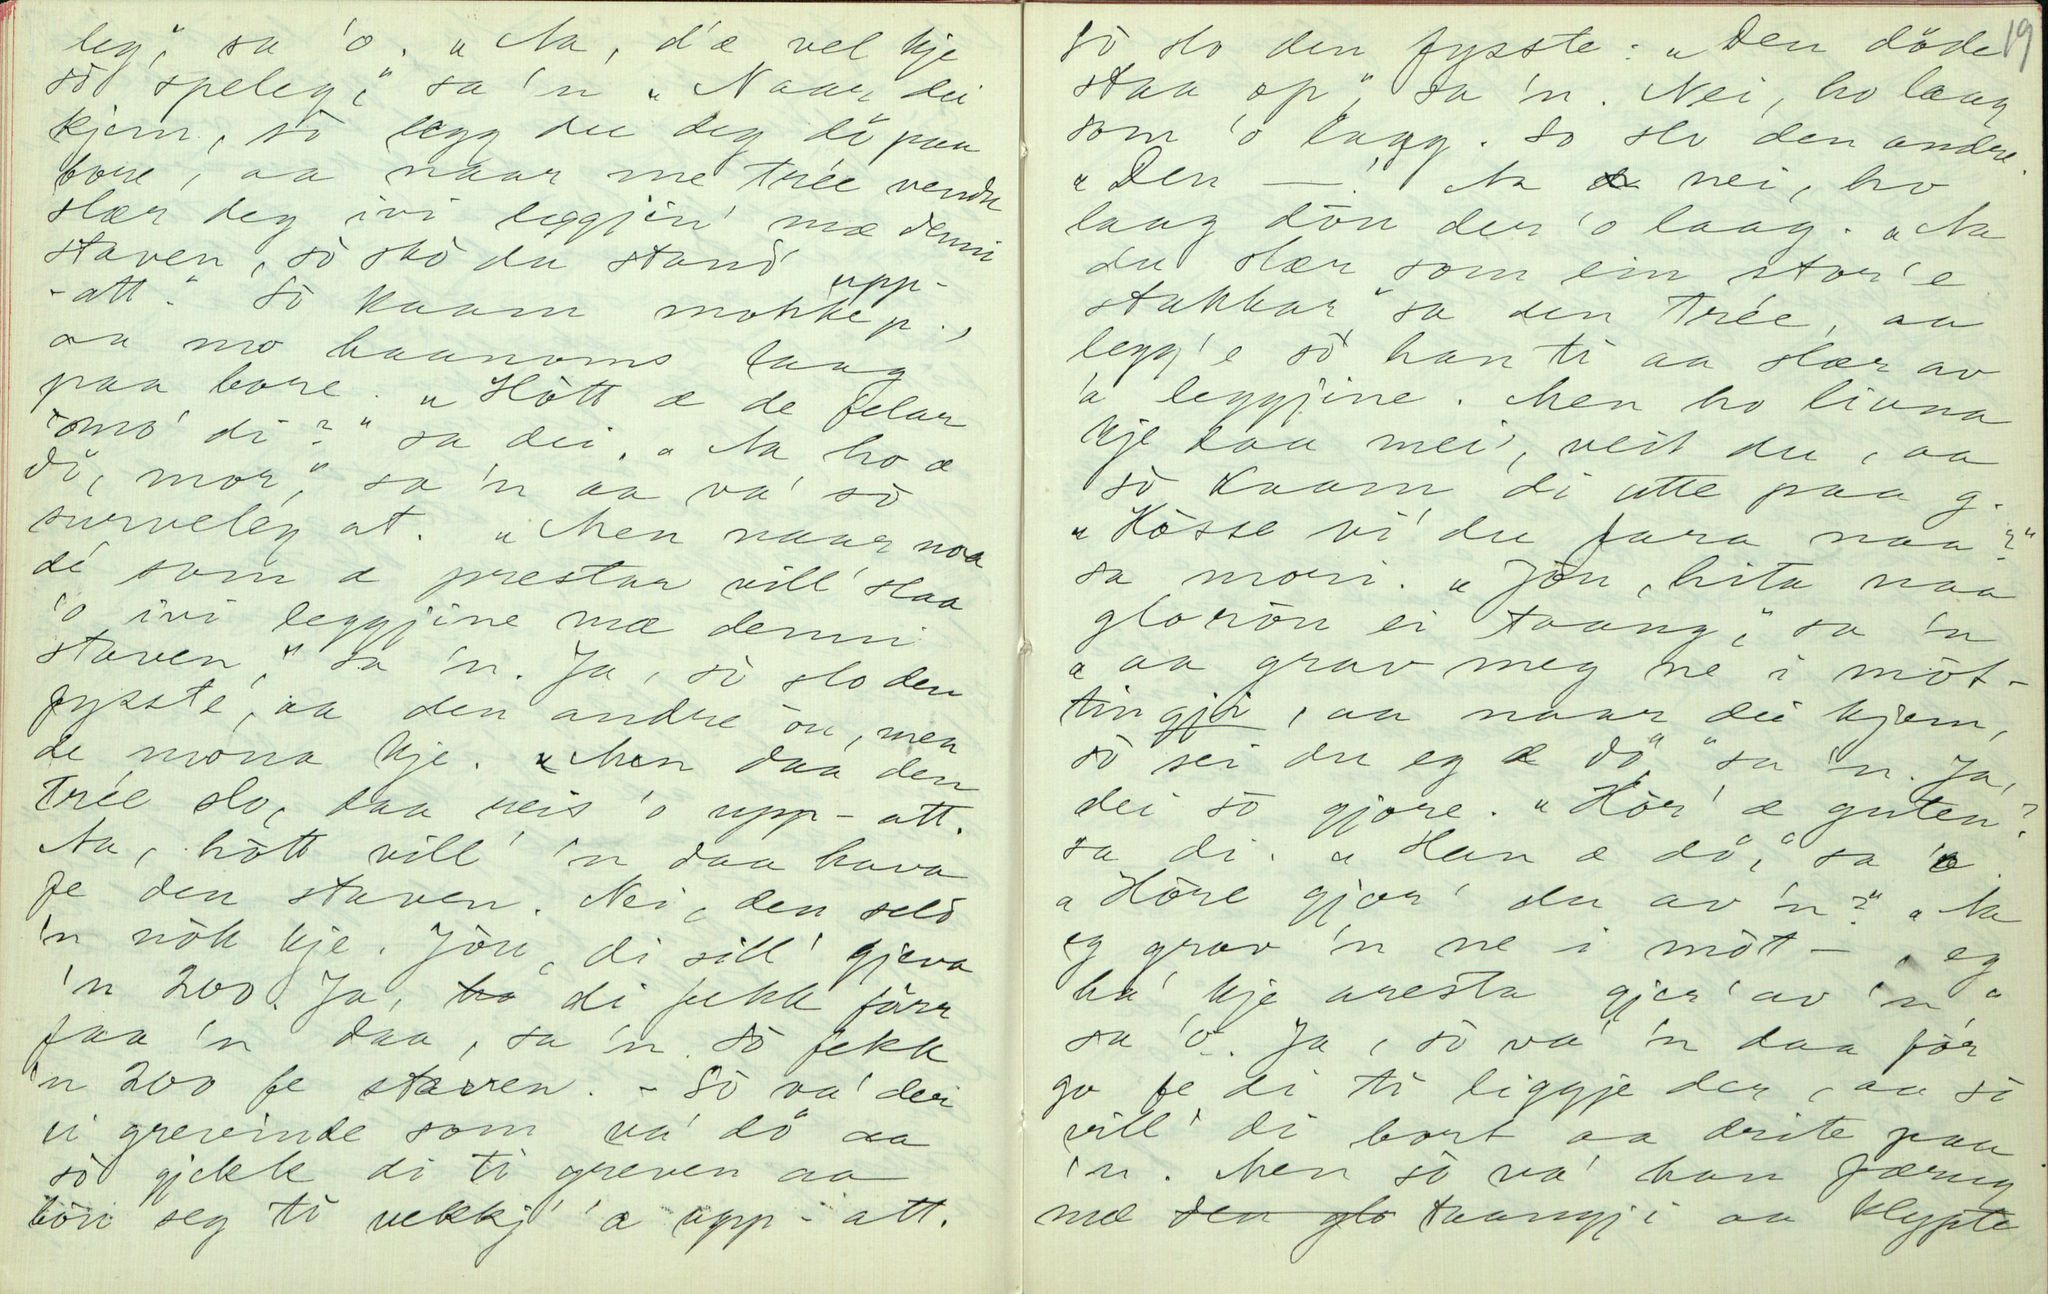 leg," sa 'o. "Aa, d'æ vel kje
sò speleg," sa 'n "Naar dei
kjem, sò legg du deg dö paa
bore, aa naar me trée vendu
slær deg ivi leggjin' mæ denni
staven, sò skò du stand' upp-
-att." Sò kaam mokkep.,
aa mo haanoms laag
paa bore. "Hòtt æ de felar
òmo' di?" sa dei. "Aa ho æ
dö, mor," sa 'n aa va' sò
surveleg at. "Men naar noa
dé som æ prestar vill' slaa
'o ivi leggjine mæ denni
staven," sa 'n. Ja, sò slo den
fysste, aa den andre òu, men
de mona kje. Men daa den
trée slo, daa reis 'o upp-att.
Aa, hòtt vill' 'n daa hava
fe den staven. Nei, den seld
'n nòk kje. Jòu, di sill' gjeva
'n 200. Ja, ho di fekk förr
faa 'n daa, sa 'n. Sò fekk
'n 200 fe staven. - Sò va' dei
ei grevinde som va' dö aa
sò gjekk di ti greven aa
böu seg ti vekkj' 'a upp-att.
19
Sò slo den fysste: "Den döde
staa op", sa 'n. Nei, ho laag
som 'o laag. So slo den andre.
"Den —!" Aa nei, ho
laag dòu der 'o laag. "Aa
du slær som ein stor'e
stakkar" sa den trée, aa
legg'e sò han ti aa slær av
'a leggjine. Men ho livna
kje daa mei', veit du, aa
sò kaam di atte paa g.
"Hòsse vi' du fara naa?"
sa mori. "Jòu, hita naa
gloròu ei taang," sa 'n
"aa grav meg ne i mòt-
tingji, aa naar dei kjem,
sò sei du eg æ dö" sa 'n. Ja,
dei sò gjore. "Hòr' æ guten?
sa di. "Han æ dö," sa 'o.
"Hòre gjor' du av 'n?" "Aa
eg grov 'n ne i mòt-, eg
ha' kje aresta gjer' av 'n"
sa 'o. Ja, sò va' 'n daa för
go fe di ti liggje der, aa sò
vill' di bort aa drite paa
'n. Men sò va' han færug
mæ den glo taangji aa klypte